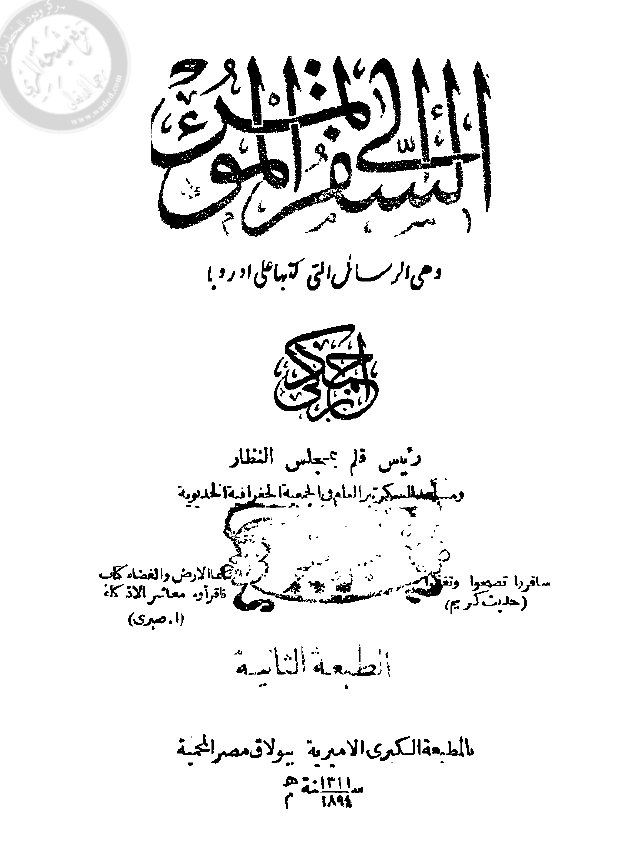 السفر الى المؤتمر
وهى الرسائل التى كتبها على اوروبا
احمد زكى
رئيس قلم بمجلس النظار
ومساعد السكرتير العام فى الجمعية الجغرافية الخديوية
سافروا تصحوا وتغنموا
(حديث كريم)
انما الارض والفضاء كتاب
فاقرأوه معاشر الاذكياء
(ا. صبرى)
الطبعة الثانية
بالمطبعة الكبرى الاميرية ببولاق مصر المحمية
سنة ١٣١١ هـ
١٨٩٤ م
www.wadod.com